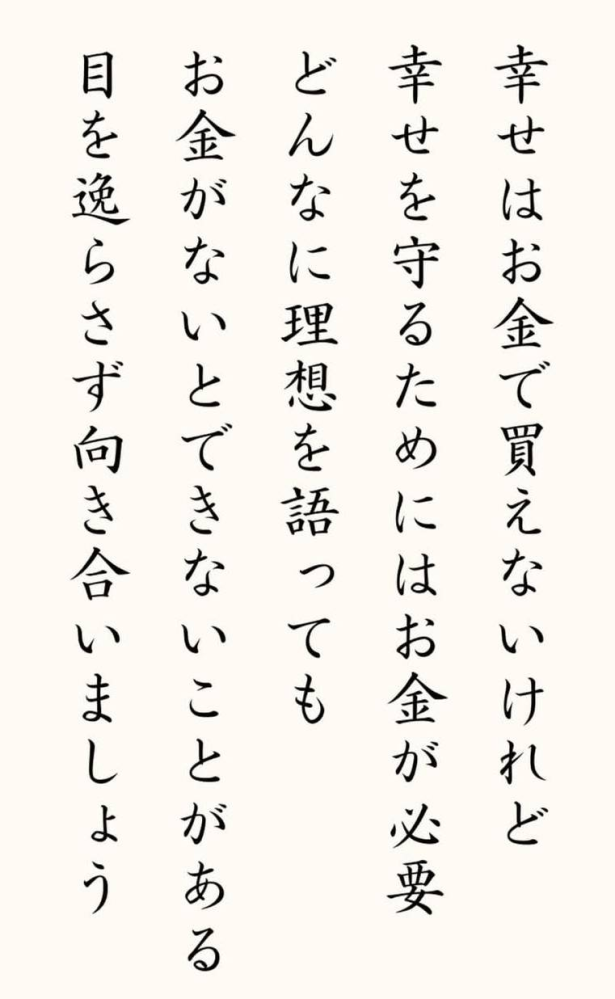 幸せはお金で買えないけれど
幸せを守るためにはお金が必要
どんなに理想を語っても
お金がないとできないことがある
目を逸らさず向き合いましょう